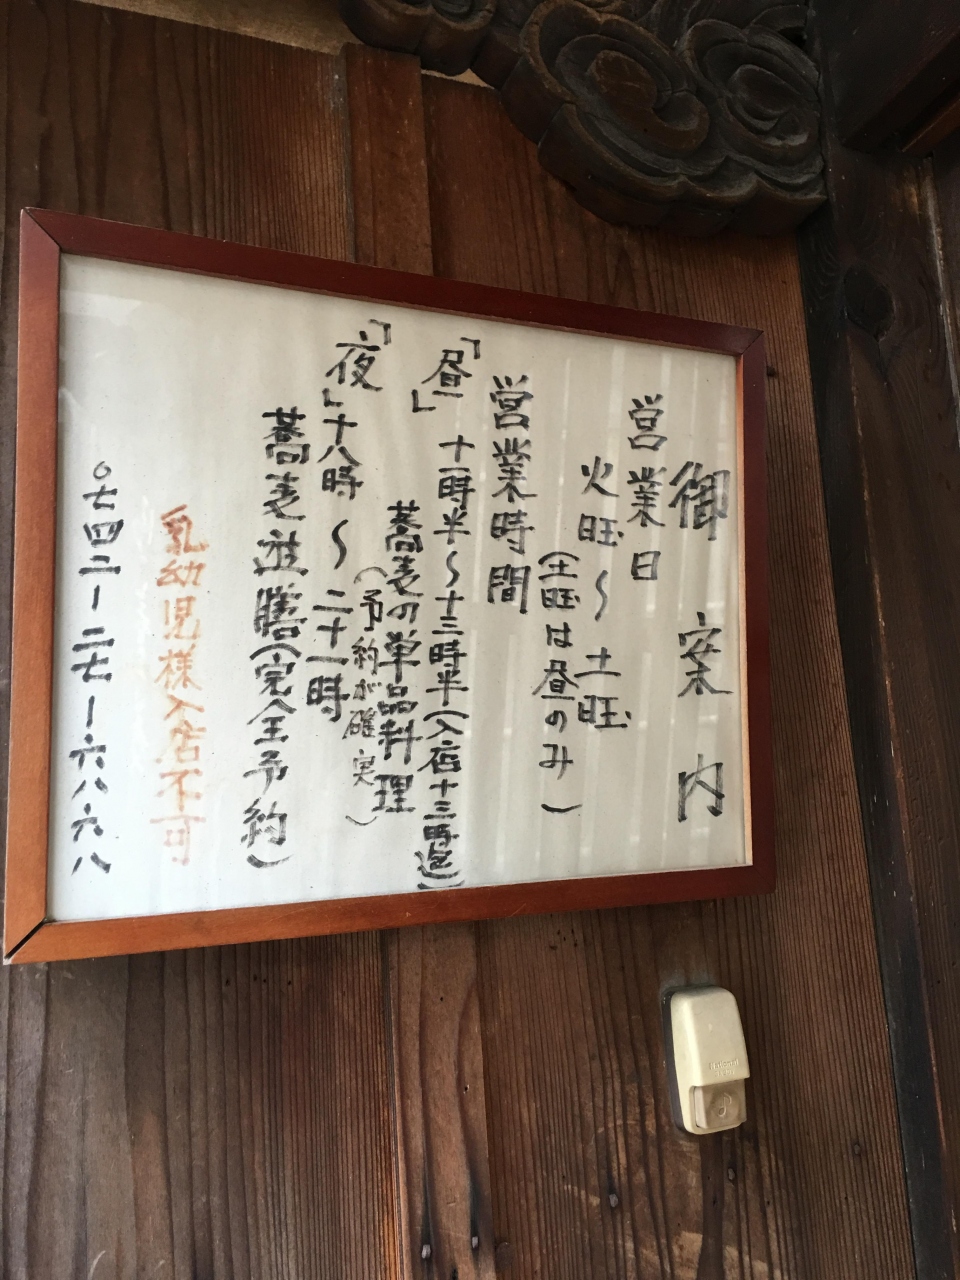 御案内
営業日
火旺〜土旺
(土旺は昼のみ)
営業時間
「昼」十一時半〜十三時半(入店十三時迄)
蕎麦の単品料理
(予約が確実)
「夜」十八時〜二十一時
蕎麦遊膳(完全予約)
乳幼児様入店不可
〇七四二ー二七ー六八六八
National